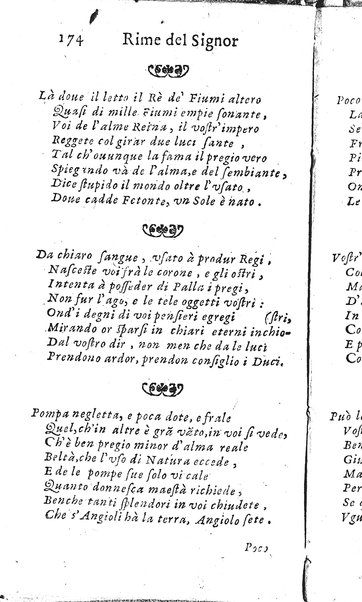 174 Rime del Signor
Là doue il letto il Rè de' Fiumi altero
Quaſi di mille Fiumi empie ſonante,
Voi de l'alme Reina, il voſtr'impero
Reggete col girar due luci ſante,
Tal ch'ouunque la fama il pregio vero
Spiegando và de l'alma, e del ſembiante,
Dice ſtupido il mondo oltre l'vſato,
Doue cadde Fetonte, vn Sole è nato.
Da chiaro ſangue, vſato à produr Regi,
Naſceſte voi frà le corone, e gli oſtri,
Intenta à poſſeder di Palla i pregi,
Non fur l'ago, e le tele oggetti voſtri:
Ond'i degni di voi penſieri egregi (ſtri,
Mirando or ſparſi in chiari eterni inchio-
Dal voſtro dir, non men che da le luci
Prendono ardor, prendon conſiglio i Duci.
Pompa negletta, e poca dote, e frale
Quel, ch'in altre è grã vãto, in voi ſi vede,
Ch'è ben pregio minor d'alma reale
Beltà, che l'vſo di Natura eccede,
E de le pompe ſue ſolo vi cale
Quanto donneſca maeſtà richiede,
Benche tanti ſplendori in voi chiudete,
Che s'Angioli hà la terra, Angiolo ſete.
Poco
Poco
La
Qu
Se
Fr
Pi
Pr
On
Voſtr'
Co
Ma
D'
In
Co
E p
Co
Può l
Voſ
Ben
Giu
Ma
Per
Se q
Vgu